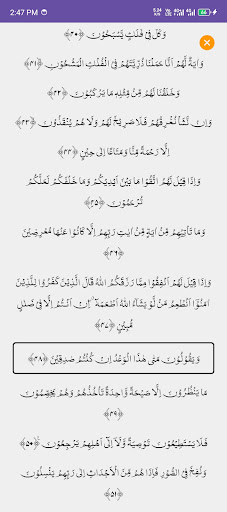 2:47 PM
وَكُلٌّ فِیْ فَلَكٍ یَّسْبَحُوْنَ ﴿۴۰﴾
وَاٰیَةٌ لَّهُمْ اَنَّا حَمَلْنَا ذُرِّیَّتَهُمْ فِی الْفُلْكِ الْمَشْحُوْنِ ﴿۴۱﴾
وَخَلَقْنَا لَهُمْ مِّنْ مِّثْلِهٖ مَا یَرْكَبُوْنَ ﴿۴۲﴾
وَاِنْ نَّشَاْ نُغْرِقْهُمْ فَلَا صَرِیْخَ لَهُمْ وَلَا هُمْ یُنْقَذُوْنَ ﴿۴۳﴾
اِلَّا رَحْمَةً مِّنَّا وَمَتَاعًا اِلٰی حِیْنٍ ﴿۴۴﴾
وَاِذَا قِیْلَ لَهُمُ اتَّقُوْا مَا بَیْنَ اَیْدِیْكُمْ وَمَا خَلْفَكُمْ لَعَلَّكُمْ
تُرْحَمُوْنَ ﴿۴۵﴾
وَمَا تَاْتِیْهِمْ مِّنْ اٰیَةٍ مِّنْ اٰیٰتِ رَبِّهِمْ اِلَّا كَانُوْا عَنْهَا مُعْرِضِیْنَ
﴿۴۶﴾
وَاِذَا قِیْلَ لَهُمْ اَنْفِقُوْا مِمَّا رَزَقَكُمُ اللّٰهُ قَالَ الَّذِیْنَ كَفَرُوْا لِلَّذِیْنَ
اٰمَنُوْۤا اَنُطْعِمُ مَنْ لَّوْ یَشَآءُ اللّٰهُ اَطْعَمَهٗۤ ۖ اِنْ اَنْتُمْ اِلَّا فِیْ ضَلٰلٍ
مُّبِیْنٍ ﴿۴۷﴾
وَیَقُوْلُوْنَ مَتٰی هٰذَا الْوَعْدُ اِنْ كُنْتُمْ صٰدِقِیْنَ ﴿۴۸﴾
مَا یَنْظُرُوْنَ اِلَّا صَیْحَةً وَّاحِدَةً تَاْخُذُهُمْ وَهُمْ یَخِصِّمُوْنَ
﴿۴۹﴾
فَلَا یَسْتَطِیْعُوْنَ تَوْصِیَةً وَّلَاۤ اِلٰۤی اَهْلِهِمْ یَرْجِعُوْنَ ﴿۵۰﴾
وَنُفِخَ فِی الصُّوْرِ فَاِذَا هُمْ مِّنَ الْاَجْدَاثِ اِلٰی رَبِّهِمْ یَنْسِلُوْنَ
﴿۵۱﴾